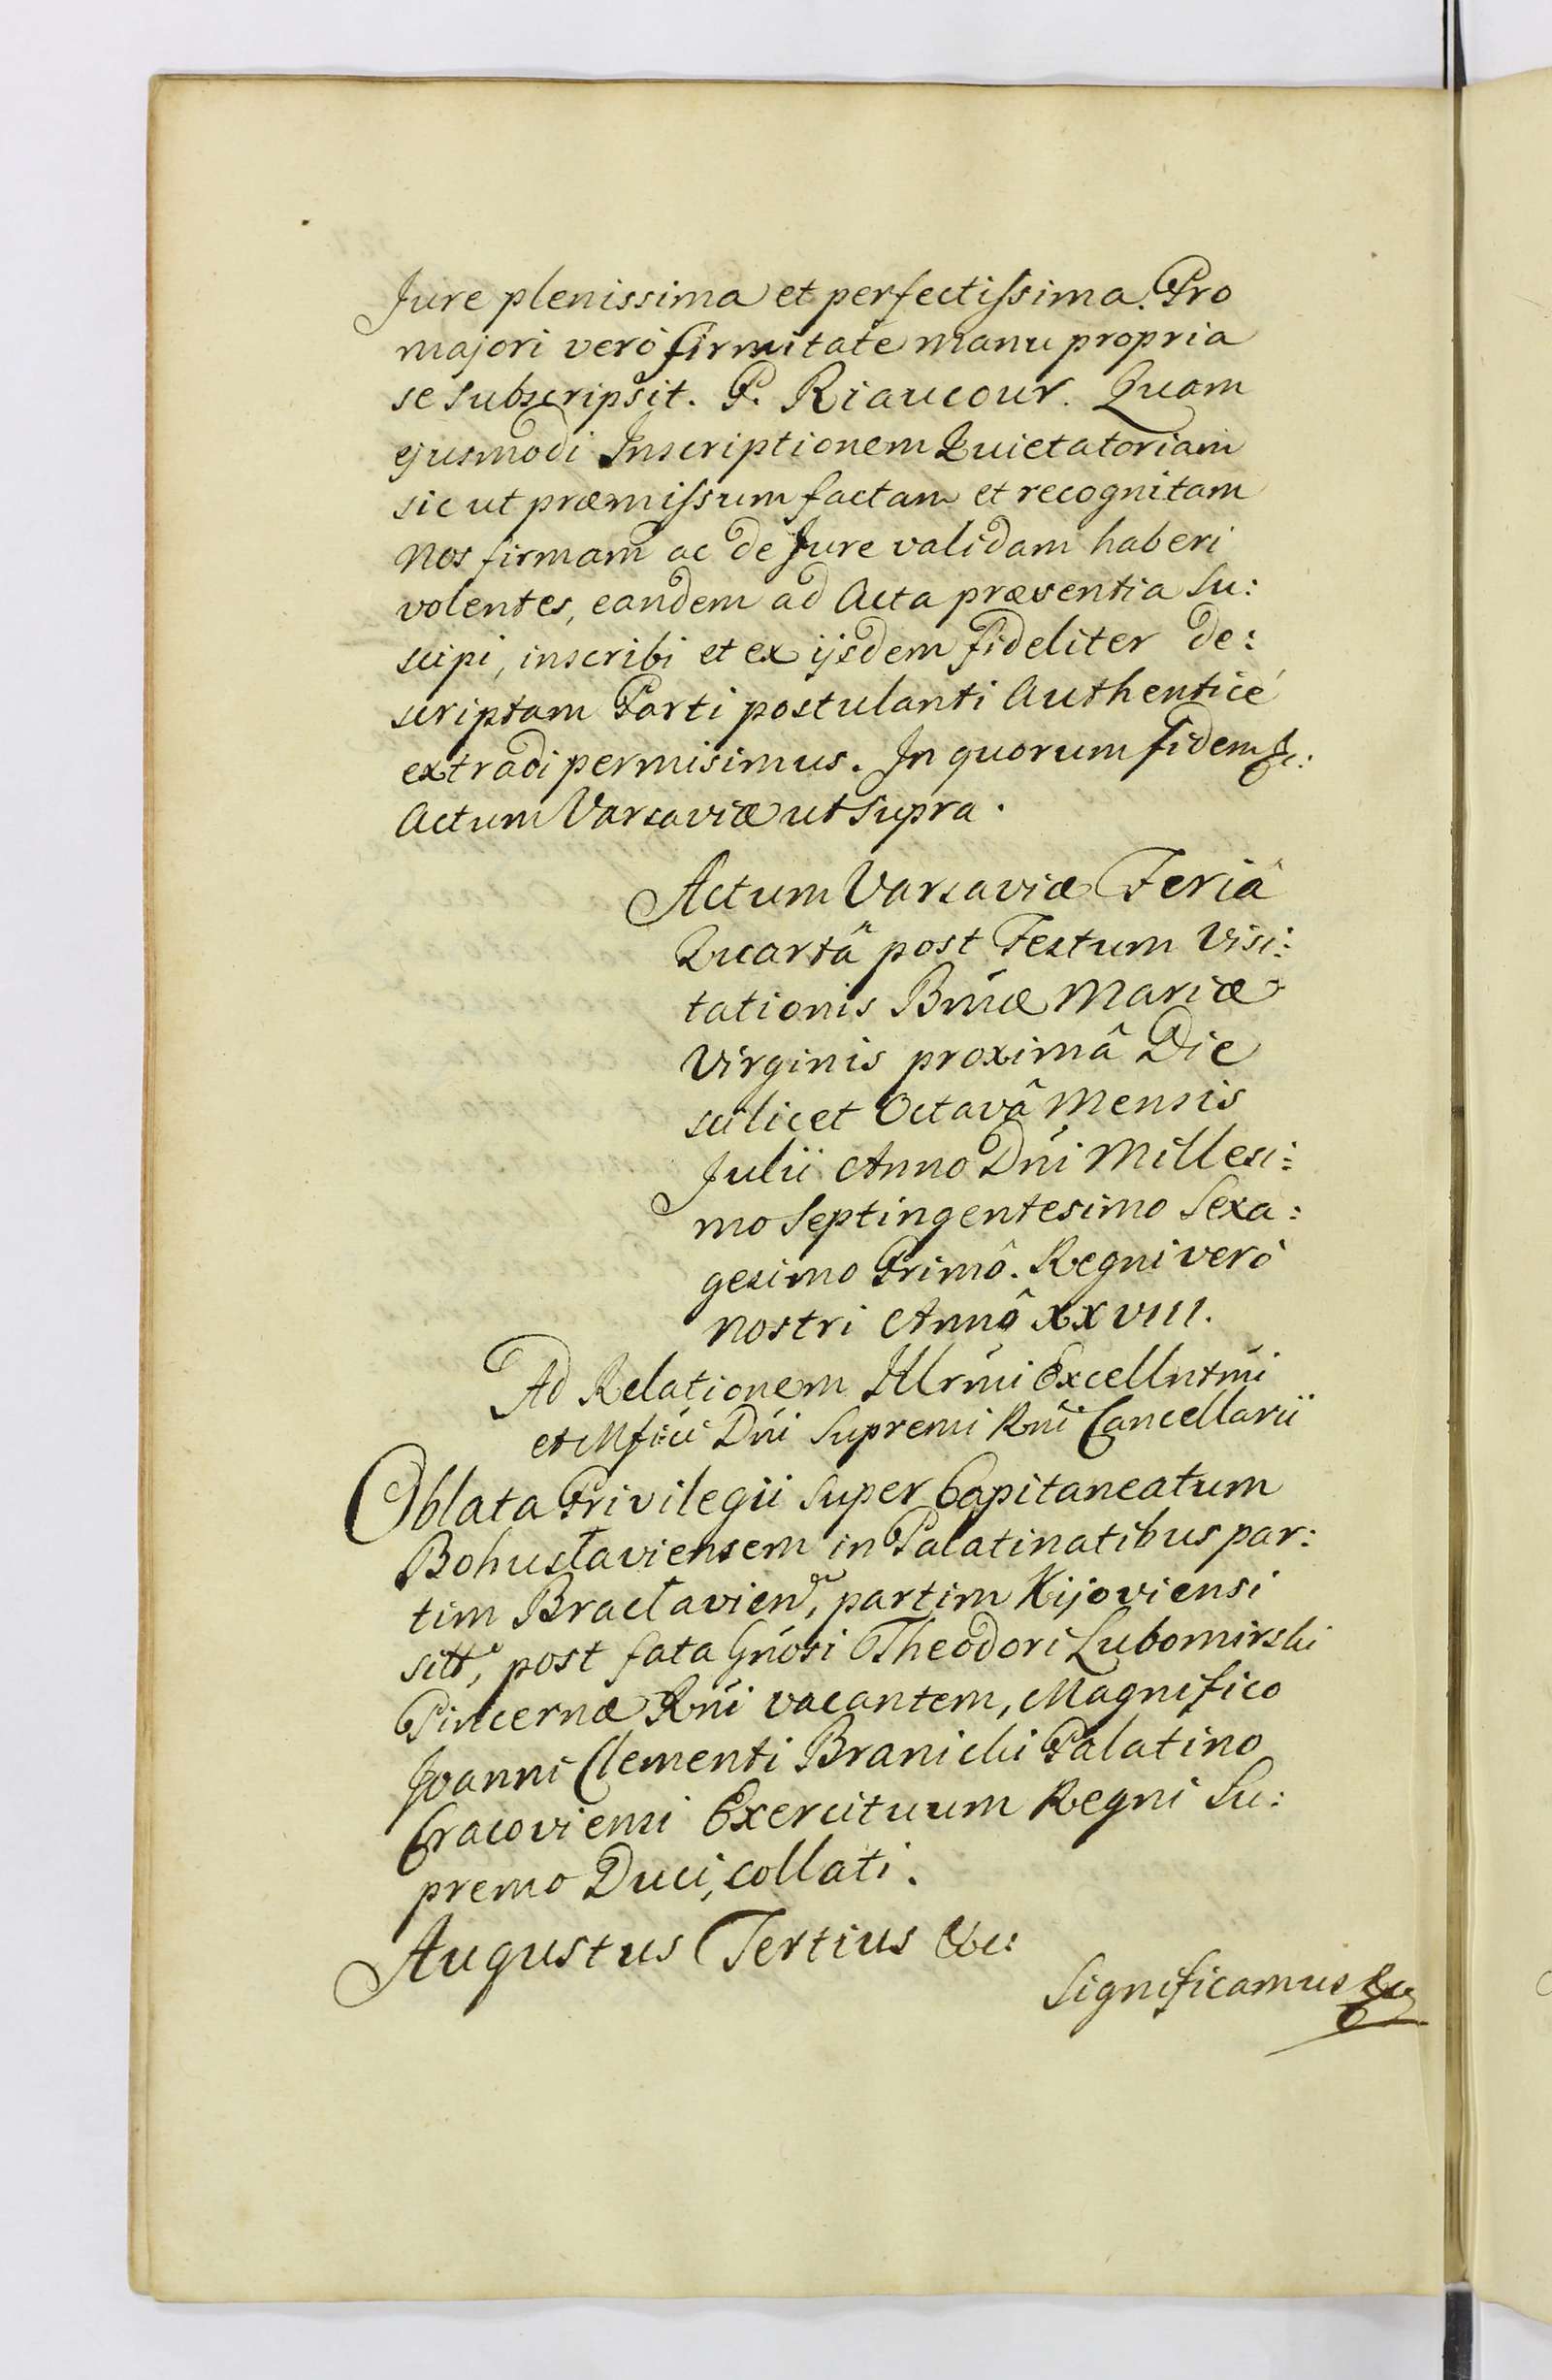 Jure plenissima et perfectissima. Pro
majori verò firmitate manu propria
se subscripsit. P. Riaucour. Quam
ejusmodi Inscriptionem Quietatoriam
sic ut præmissum factam et recognitam
Nos firmam ac de Jure validam haberi
volentes, eandem ad Acta præsentia su:
scipi, inscribi et ex ijsdem fideliter de:
scriptam Parti postulanti Authenticè
extradi permisimus. In quorum fidem &c:
Actum Varsaviæ ut supra.
Actum Varsaviæ Feriâ
Quartâ post Festum Visi:
tationis Bmæ Mariæ
Virginis proximâ Die
scilicet Octavâ Mensis
Julii Anno Dni Millesi:
mo Septingentesimo Sexa:
gesimo Primô. Regni verò
nostri Annô XXVIII.
Ad Relationem Illrmi Excellntmi
et Mfici Dni Supremi Rni Cancellarii
Oblata Privilegii super Capitaneatum
Bohuslaviensem in Palatinatibus par:
tim Braclavien, partim Kijoviensi
sitt, post fata Gnosi Theodori Lubomirski
Pincernæ Rni vacantem, Magnifico
Joanni Clementi Branicki Palatino
Cracoviensi Exercituum Regni Su:
premo Duci, collati.
Augustus Tertius &c:
Significamus &c